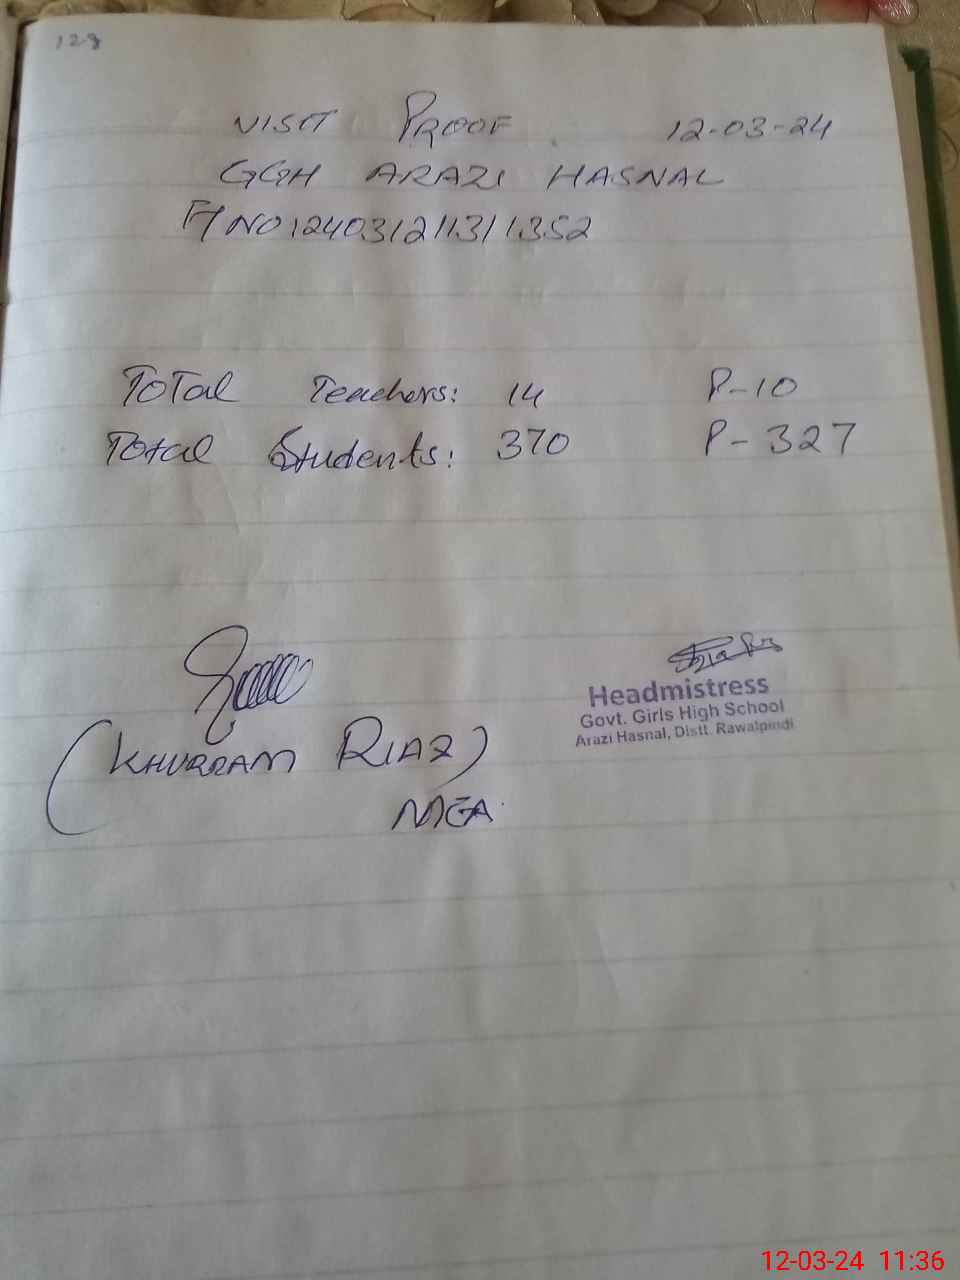 128
VISIT PROOF 12-03-24
GGH ARAZI HASNAL
Total Teachers: 14 P-10
Total Students: 370 P-327
(KHURRAM RIAZ)
MEA
Headmistress
Govt. Girls High School
Arazi Hasnal, Distt. Rawalpindi
12-03-24 11:36